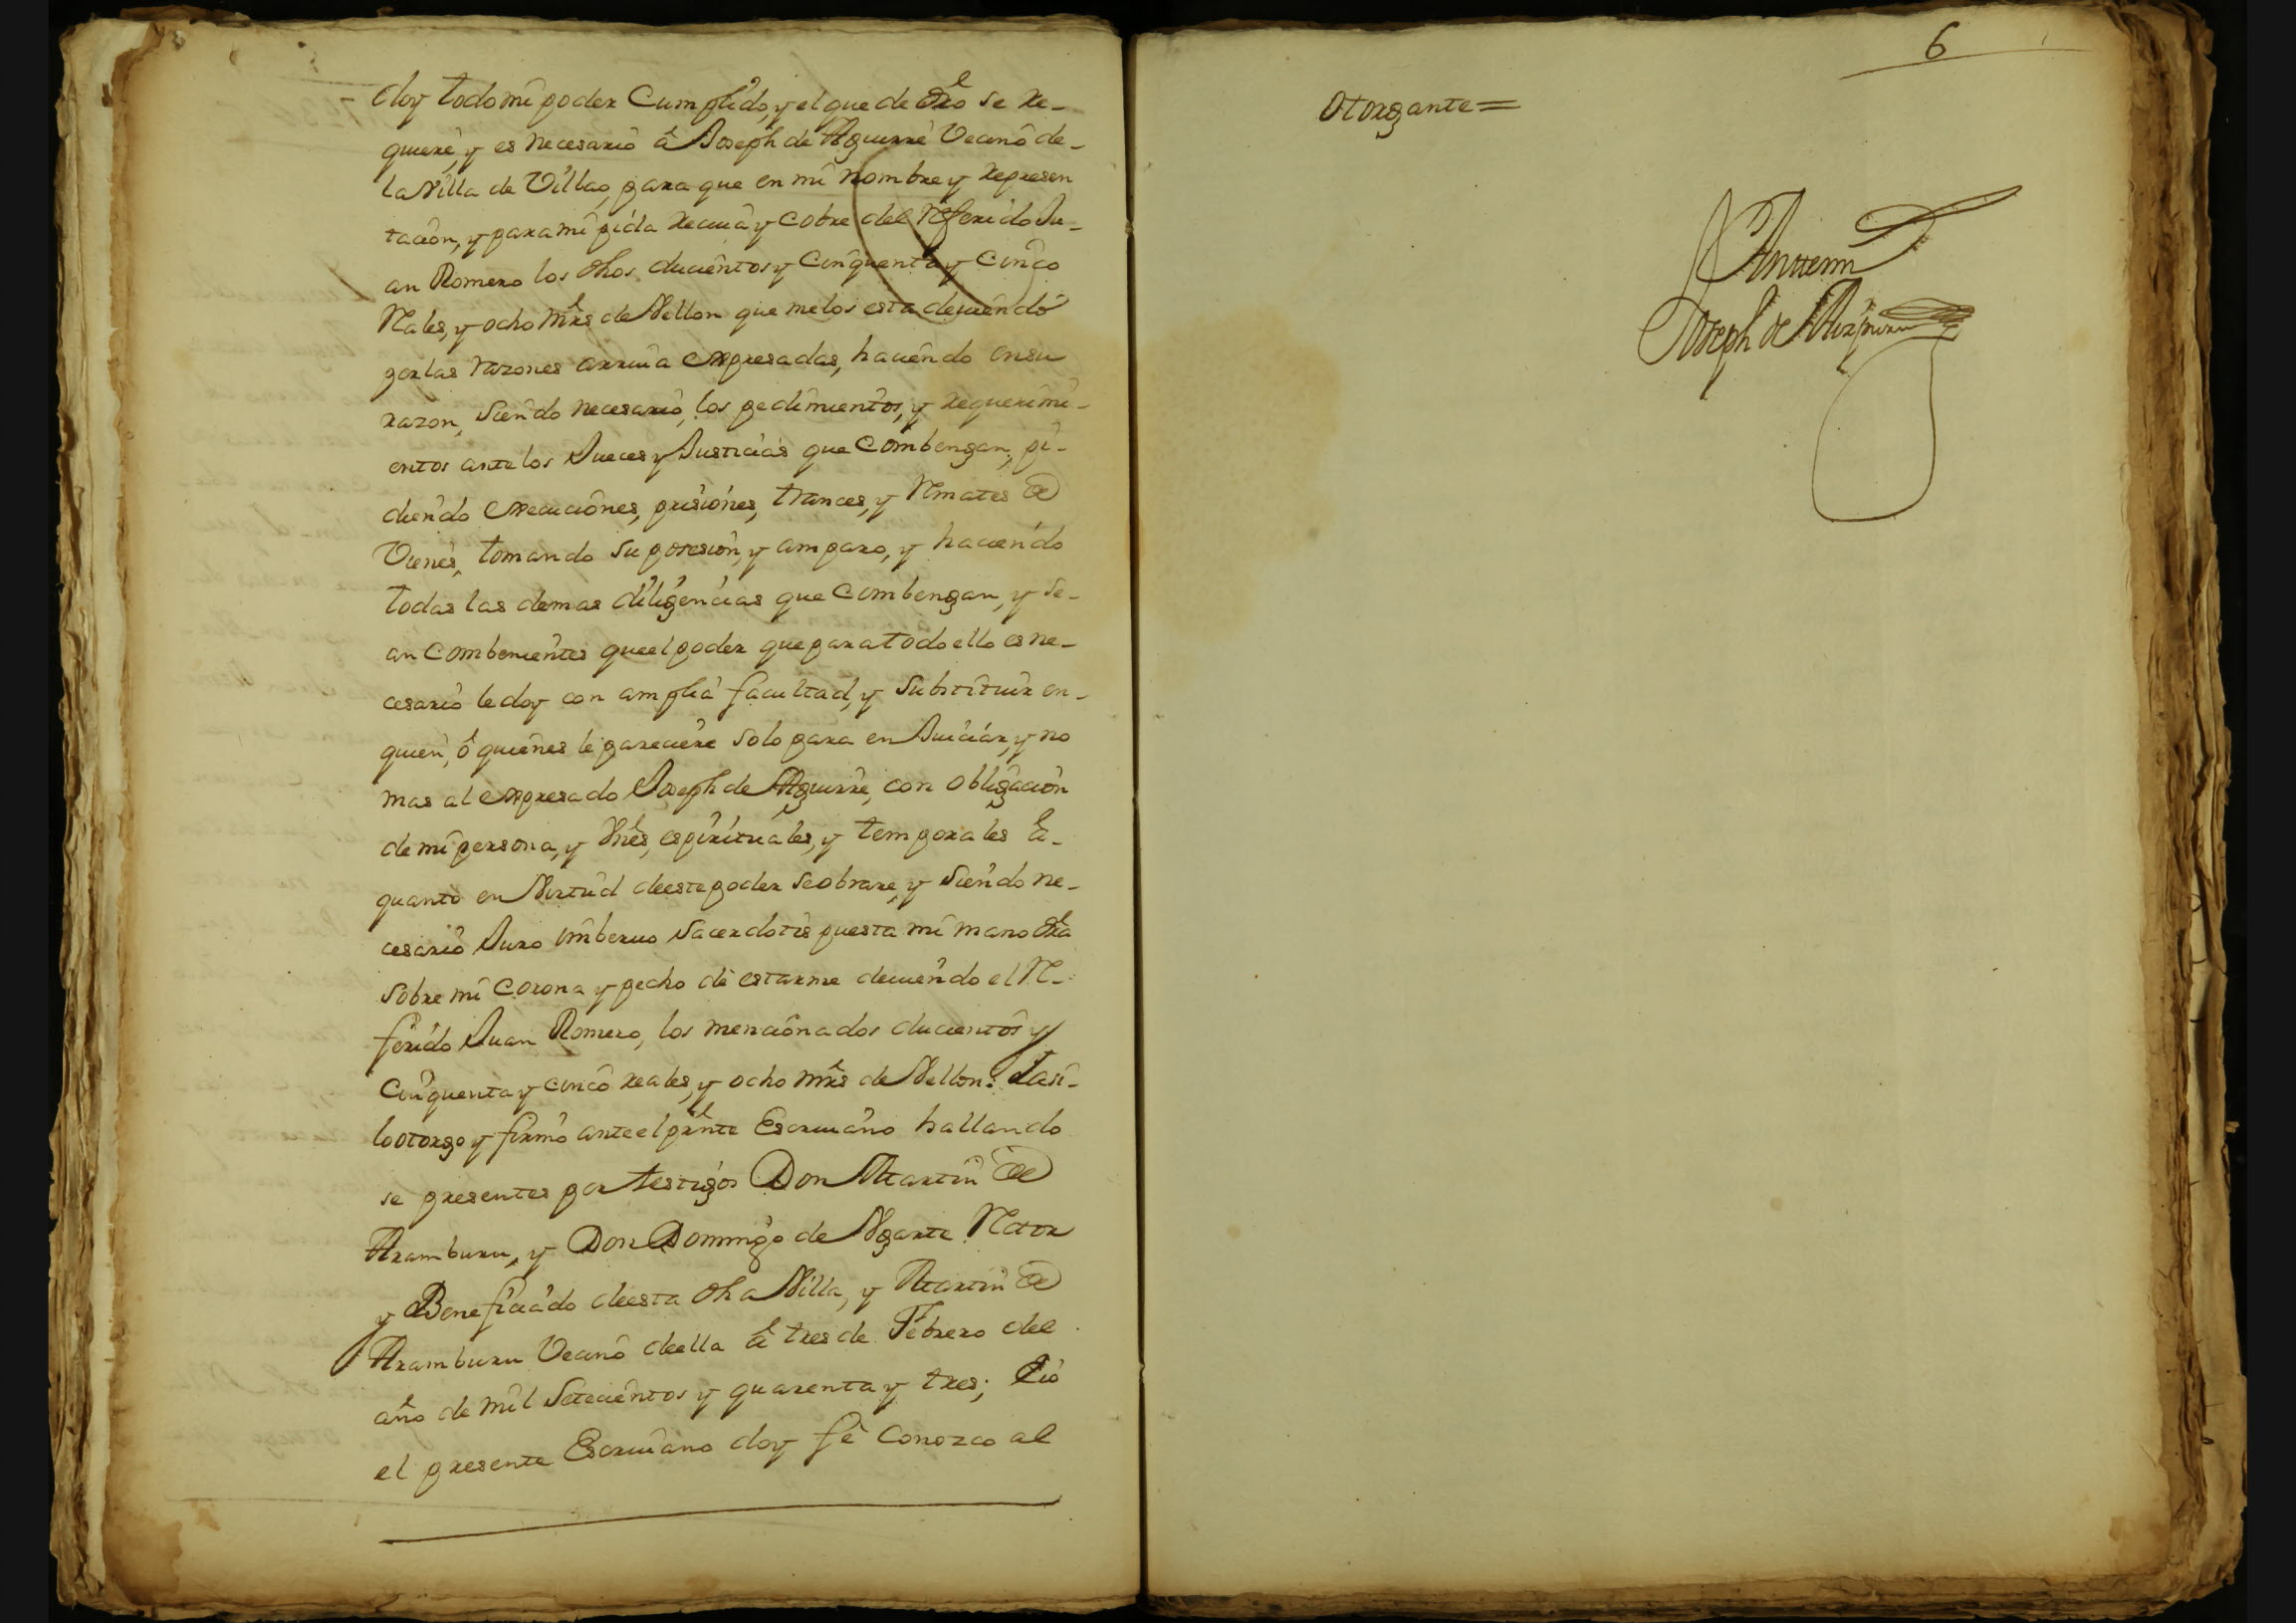 doy todo mi poder Cumplido, y el que de dro se re-
quiere, y es necesario â Joseph de Aguirre Vecino de-
la Villa de Villao, para que en mi nombre y represen
tacion, y para mi pida reciua y Cobre del referido Ju-
an Romero los dhos ducientos y Cinquenta y Cinco
Reales, y ocho mrs de Vellon que me los esta deuiendo
por las razones arriua expresadas, haciendo en su
razon, siendo necesario, los pedimientos, y requerimi-
entos ante los Jueces y Justicias que Combengan, pi-
diendo execuciones, prisiones, trances, y Remates de
Vienes, tomando su posesion, y amparo, y haciendo
todas las demas diligencias que Combengan, y se-
an Combenientes que el poder que para todo ello es ne-
cesario le doy con amplia facultad, y Substituir en-
quien, ô quienes le pareciere solo para en Juiciar, y no
mas al expresado Joseph de Aguirre, con obligacion
de mi persona, y vnes, espirituales, y temporales â-
quanto en Virtud de este poder se obrare, y siendo ne-
cesario Juro imberuo Sacerdotis puesta mi mano dra
sobre mi Corona y pecho de estarme deuiendo el Re-
ferido Juan Romero, los mencionados ducientos y
Cinquenta y cinco reales, y ocho mrs de Vellon: Y asi-
lo otorgo y firmo ante el prnte Escriuano hallando
se presentes por testigos Don Martin de
Aramburu, y Don Domingo de Ugarte Retor
y Beneficiado de esta dha Villa, y Martin de
Aramburu Vecino de ella â tres de Febrero del
año de mil Setecientos y quarenta y tres; E io
el presente Escriuano doy fê Conozco al
6
Otorgante=
Antemi
Joseph de Aizpuru